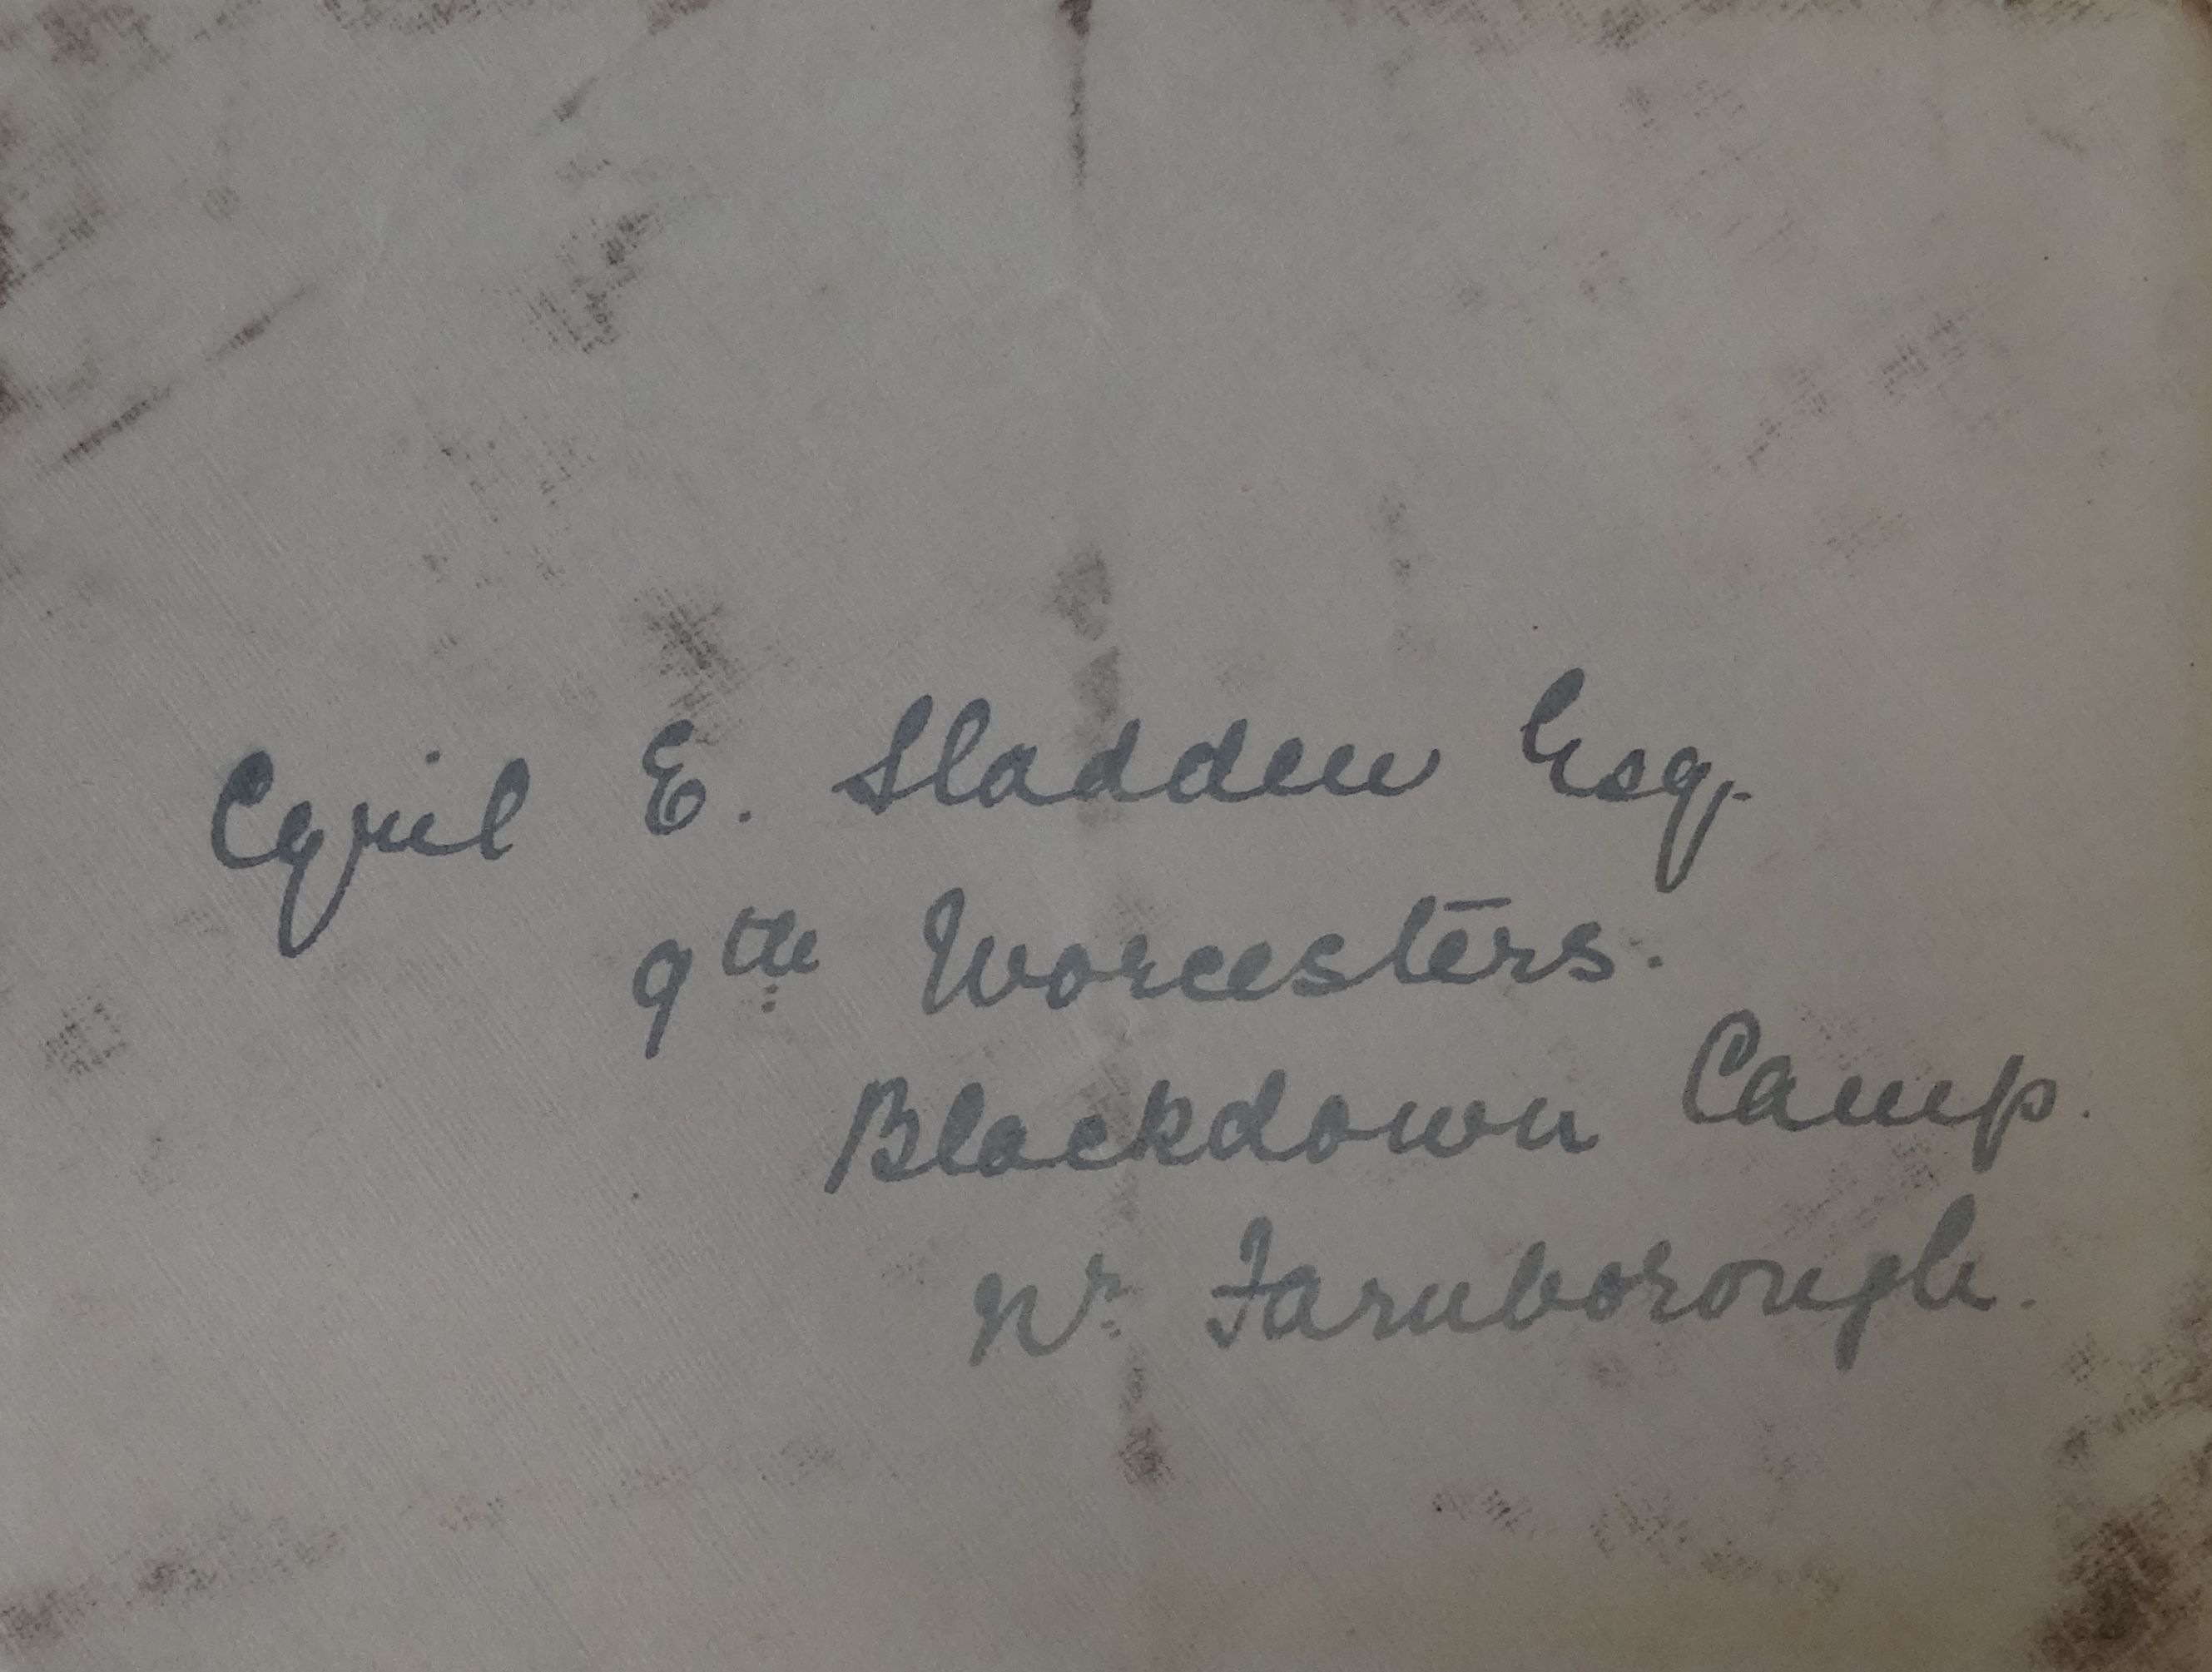 Cyril E. Sladden Esq.
9th Worcesters.
Blackdown Camp.
Nr Farnborough.